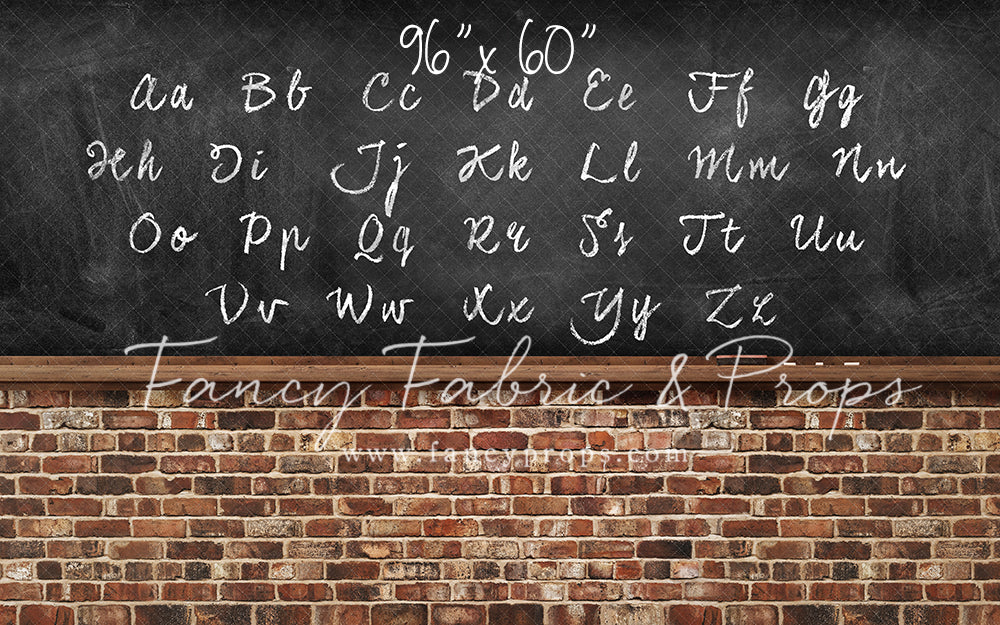 96" x 60"
Aa Bb Cc Dd Ee Ff Gg
Hh Ii Jj Kk Ll Mm Nn
Oo Pp Qq Rr Ss Tt Uu
Vv Ww Xx Yy Zz
Fancy Fabric & Props
www.fancyprops.com